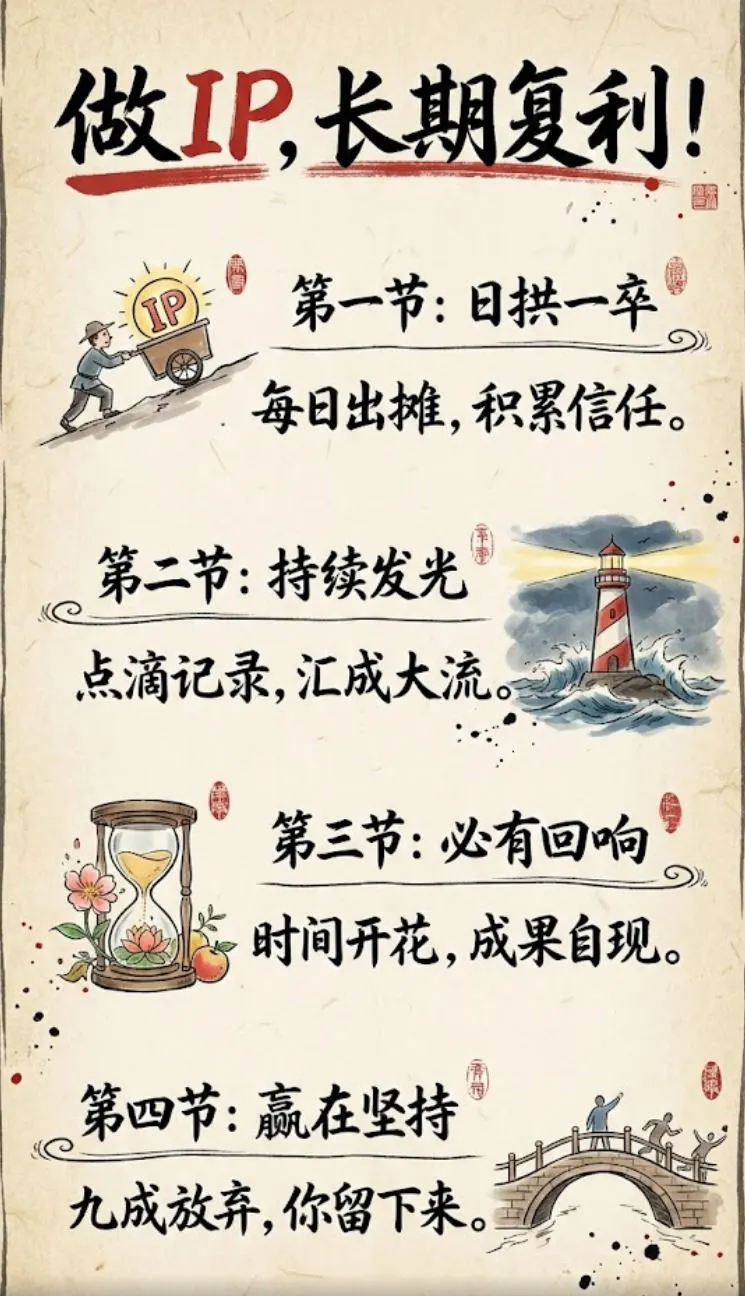 做IP,长期复利!
IP
第一节:日拱一卒
每日出摊,积累信任。
第二节:持续发光
点滴记录,汇成大流。
第三节:必有回响
时间开花,成果自现。
第四节:赢在坚持
九成放弃,你留下来。